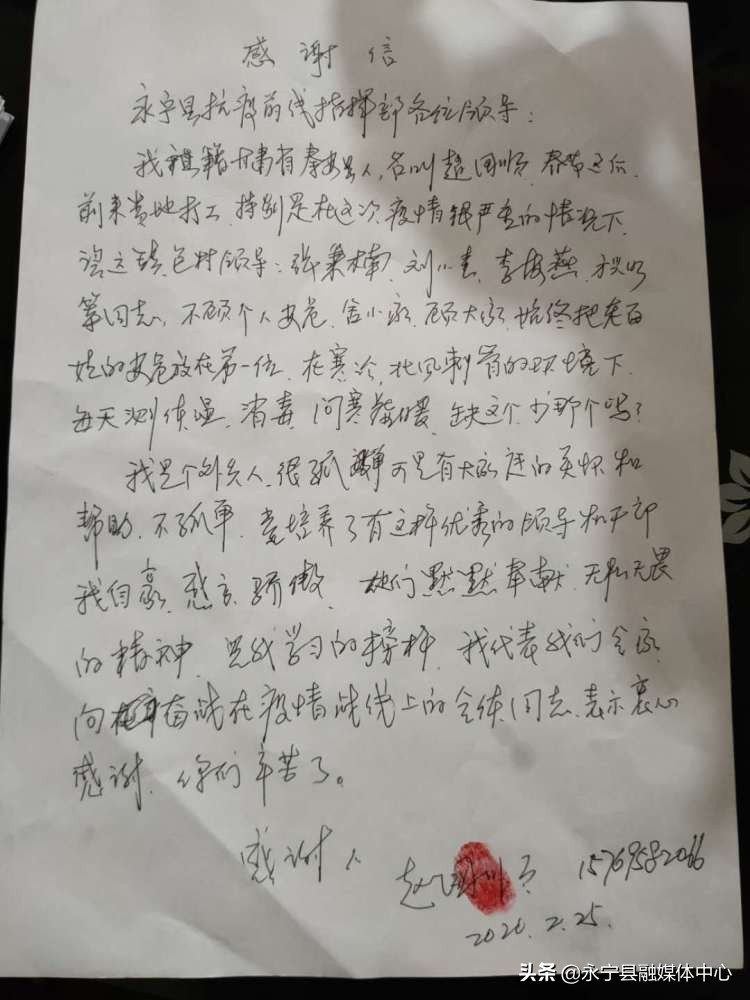 感谢信
永宁县抗疫前线指挥部各位领导:
我 籍甘肃省秦安县人,名叫赵国顺.春节过后.
前来贵地打工.特别是在这次疫情很严重的情况下
 这 包村领导:张 楠.刘小 .李海燕.
等同志,不顾个人安危.舍小家.顾大家.始终把老百
姓的安危放在第一位.在寒冷,北风刺骨的环境下.
每天测体温.消毒.问寒 暖.缺这个.少那个吗?
我是个外乡人.很孤单可是有大家庭的关怀和
帮助.不孤单.党培养了有这样优秀的领导和干部
我自豪. 骄傲. 他们默默奉献.无私无畏
的精神.是我学习的榜样.我代表我们全家.
向 奋战在疫情战线上的全体同志.表示衷心
感谢.你们辛苦了。
感谢人 赵国顺 15769582066
2020.2.25.
头条@永宁县融媒体中心